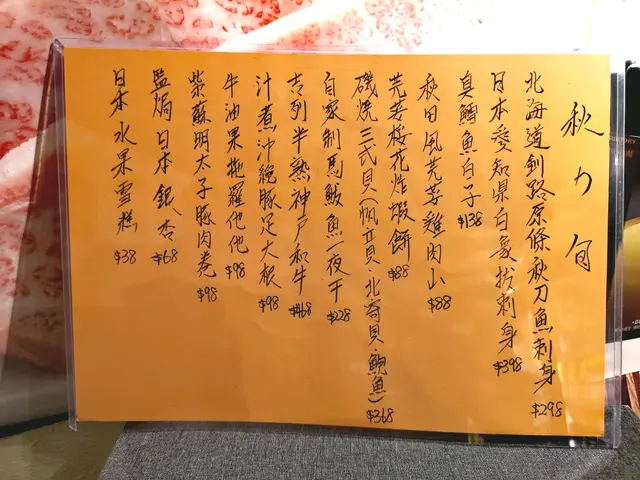 秋の旬
北海道釧路原條秋刀魚刺身 $298
日本愛知県白象拔刺身 $398
真鱈魚白子 $138
秋田風芫荽雞肉山 $88
芫荽桜花炸蝦餅 $88
磯燒三式貝(帆立貝·北寄貝·鮑魚) $368
自家制馬鮫魚一夜干 $228
吉列半熟神戶和牛 $468
汁煮沖繩豚足大根 $98
牛油果拖羅他他 $98
紫蘇明太子豚肉卷 $98
塩焗日本銀杏 $68
日本水果雪糕 $38